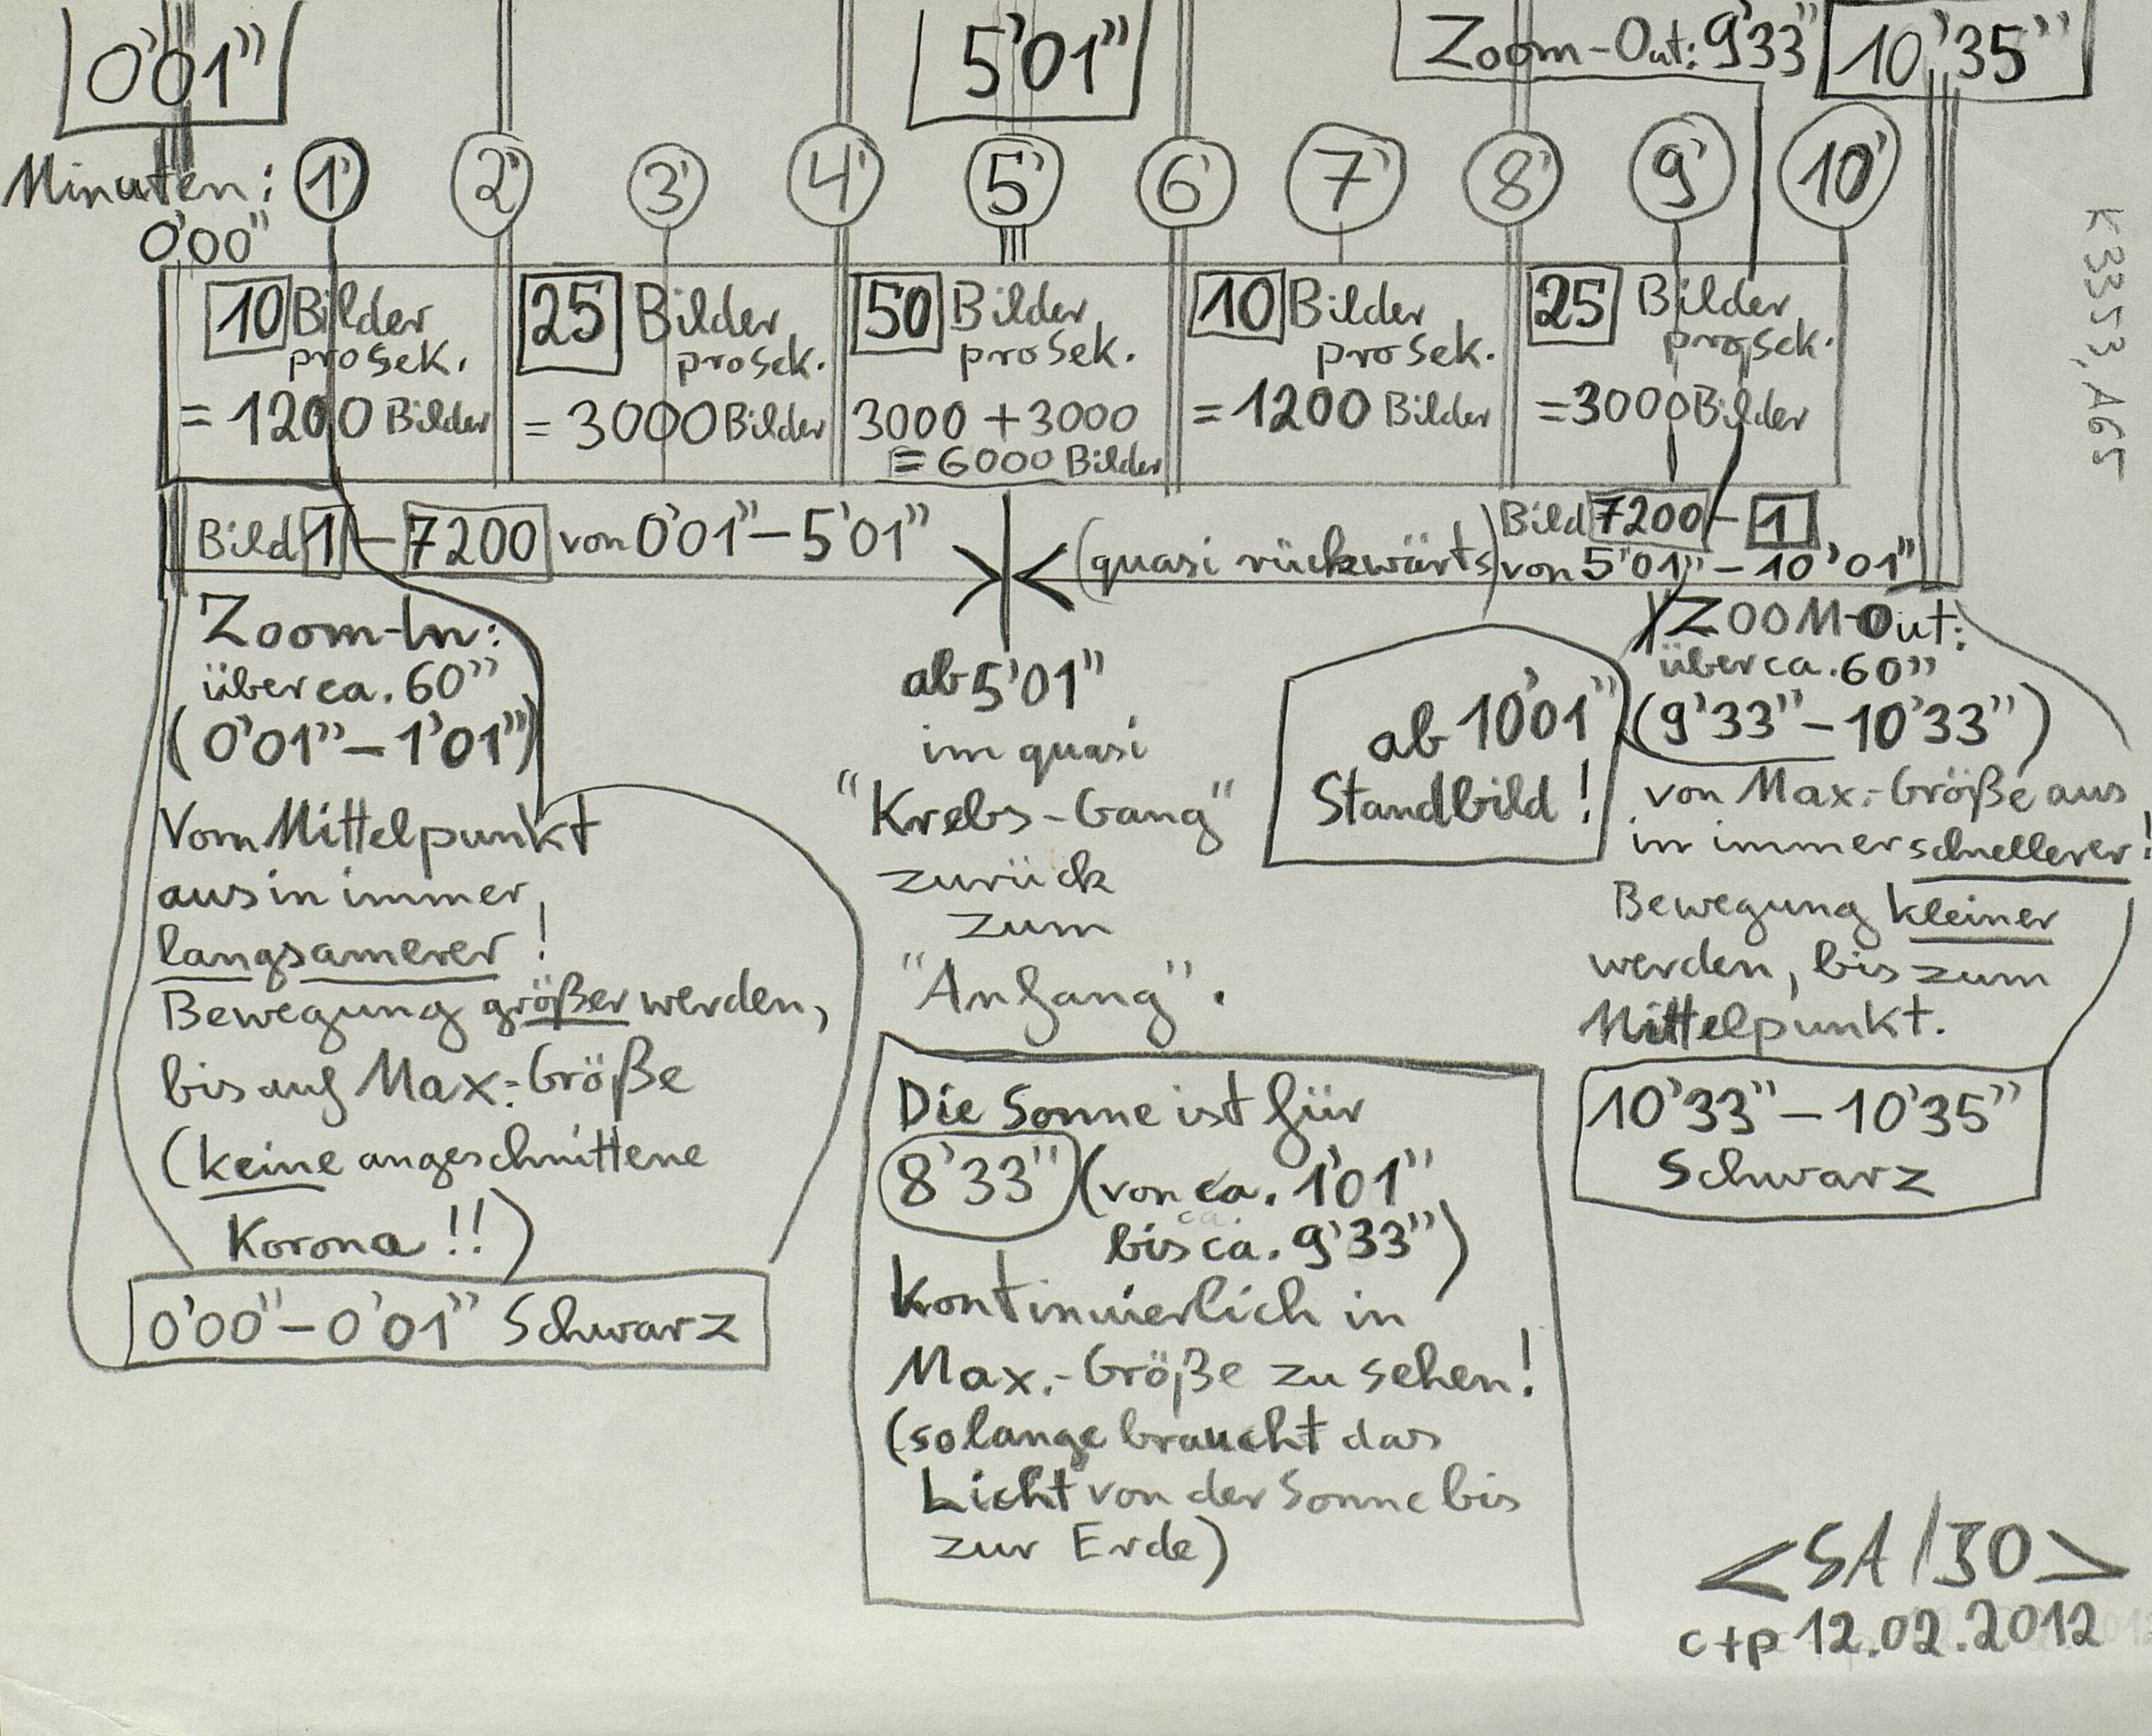 0'01"
5'01"
Zoom-Out: 9'33"
10'35"
Minuten: 1' 2' 3' 4' 5' 6' 7' 8' 9' 10'
0'00"
10 Bilder
pro Sek.
= 1200 Bilder
25 Bilder
pro Sek.
= 3000 Bilder
50 Bilder
pro Sek.
3000 + 3000
= 6000 Bilder
10 Bilder
pro Sek.
= 1200 Bilder
25 Bilder
pro Sek.
= 3000 Bilder
K3353, A65
Bild 1 – 7200 von 0'01" – 5'01"
(quasi rückwärts)
Bild 7200 – 1
von 5'01" – 10'01"
Zoom-In:
über ca. 60"
(0'01" – 1'01")
Vom Mittelpunkt
aus in immer
langsamerer!
Bewegung größer werden,
bis auf Max.-Größe
(keine angeschnittene
Korona!!)
0'00" – 0'01" Schwarz
ab 5'01"
im quasi
"Krebs-Gang"
zurück
zum
"Anfang".
Die Sonne ist für
8'33" (von ca. 1'01"
bis ca. 9'33")
kontinuierlich in
Max.-Größe zu sehen!
(solange braucht das
Licht von der Sonne bis
zur Erde)
ab 10'01"
Standbild!
ZOOM-Out:
über ca. 60"
(9'33" – 10'33")
von Max.-Größe aus
in immer schnellerer!
Bewegung kleiner
werden, bis zum
Mittelpunkt.
10'33" – 10'35"
Schwarz
<SA/30>
c+p 12.02.2012